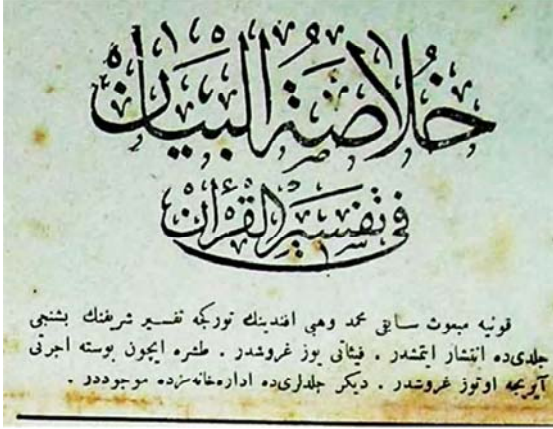 خُلَاصَةُ الْبَيَانْ
فِى تَفْسِيرِ الْقُرْآنْ
قونيه مبعوث سابقى محمد وهبى افندينك توركجه تفسير شريفنك بشنجى
جلدى‌ده انتشار ايتمشدر . فيئاتى يوز غروشدر . طشره ايچون پوسته اجرتى
آيريجه اوتوز غروشدر . ديكر جلدلرى‌ده اداره‌خانه‌مزده موجوددر .